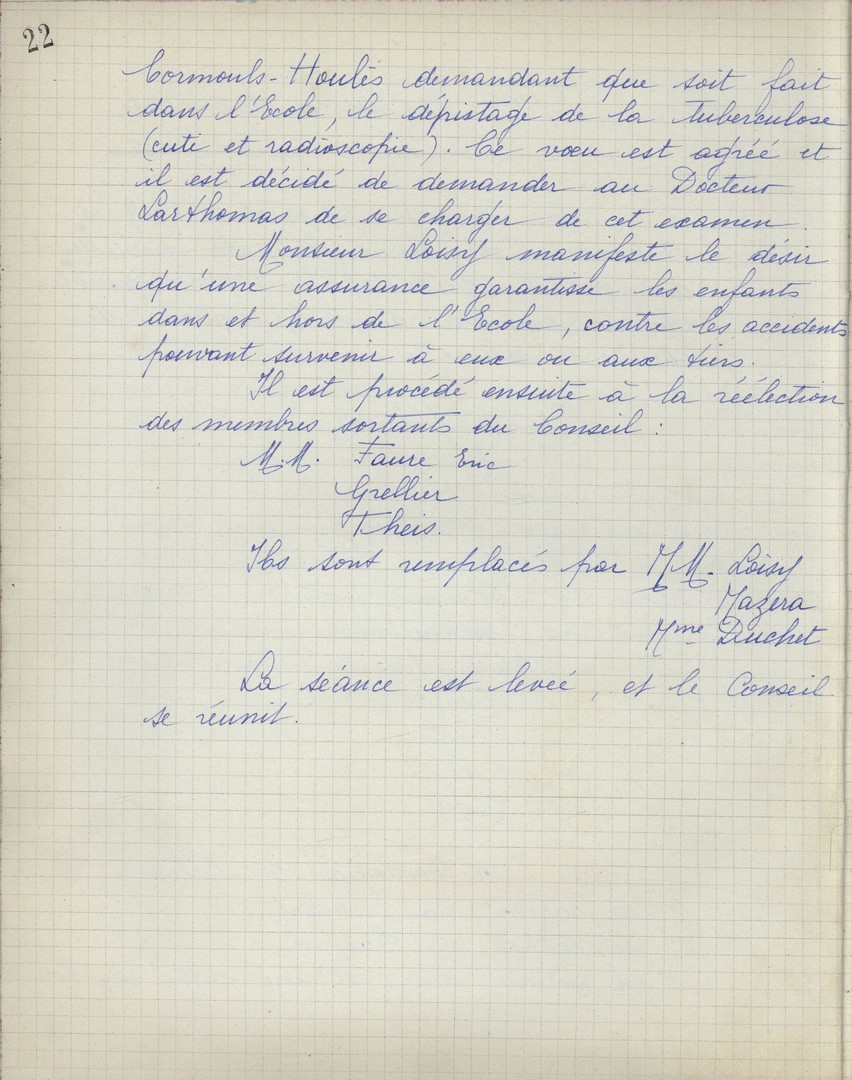 22
Cormouls-Houlès demandant que soit fait
dans l'Ecole, le dépistage de la tuberculose
(cuti et radioscopie). Ce vœu est agréé et
il est décidé de demander au Docteur
Larthomas de se charger de cet examen.
Monsieur Loisy manifeste le désir
qu'une assurance garantisse les enfants
dans et hors de l'Ecole, contre les accidents
pouvant survenir à eux ou aux tiers.
Il est procédé ensuite à la réélection
des membres sortants du Conseil :
M.M. Faure Eric
Grellier
Theis.
Ils sont remplacés par MM. Loisy
Mazera
Mme Duchet
La séance est levée, et le Conseil
se réunit.